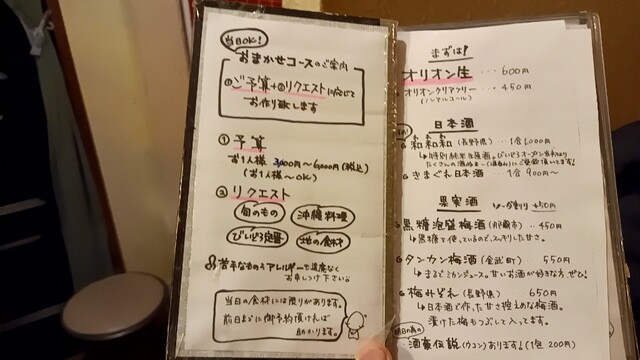 当日OK!
おまかせコースのご案内
①ご予算+②リクエストに応じて
お作り致します
① 予算
お1人様 3,000円~6,000円(税込)
(お1人様~OK)
② リクエスト
旬のもの 沖縄料理
びいどろ定番 地の食材
苦手なものやアレルギーも遠慮なく
お申しつけ下さい。
当日の食材には限りがあります。
前日までに御予約頂ければ
助かります。
まずは!
オリオン生 ・・・ 600円
オリオンクリアフリー ・・・ 450円
(ノンアルコール)
日本酒
和和和(長野県) 1合1,000円
わ わ わ
きまぐれ日本酒 1合 900円~
果実酒
ソーダ割り +50円
黒糖泡盛梅酒(那覇市) ‥ 450円
↳黒糖を使っているので、スッキリした甘さ。
タンカン梅酒(金武町) 550円
↳まるでミカンジュース。甘いお酒が好きな方、ぜひ!
梅みぞれ(長野県) 650円
↳日本酒で作った甘さ控えめな梅酒。
漬けた梅もつぶして入ってます。
明日の為の
酒豪伝説(ウコン)あります!(1包 200円)